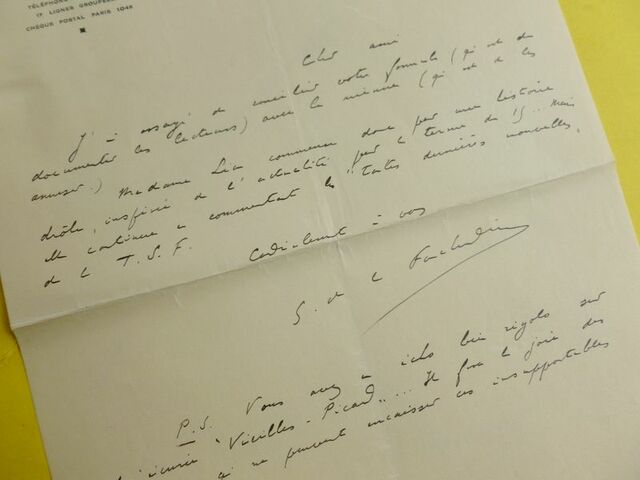 TÉLÉPHONE
17 LIGNES GROUPÉES
CHÈQUE POSTAL PARIS 1048
Cher ami
J'ai essayé de concilier votre formule (qui est de
documenter les lecteurs) avec la mienne (qui est de les
amuser.) Madame Lia commence donc par une histoire
drôle, inspirée de l'actualité "pour le terme du 15".. Mais
elle continue en commentant les "toutes dernières nouvelles,
de la T.S.F. Cordialement à vous
G. de la Fouchardière
P.S. Vous avez un écho bien rigolo sur
"Vieilles-Picard" ... Il fera la joie des
qui ne peuvent encaisser ces insupportables